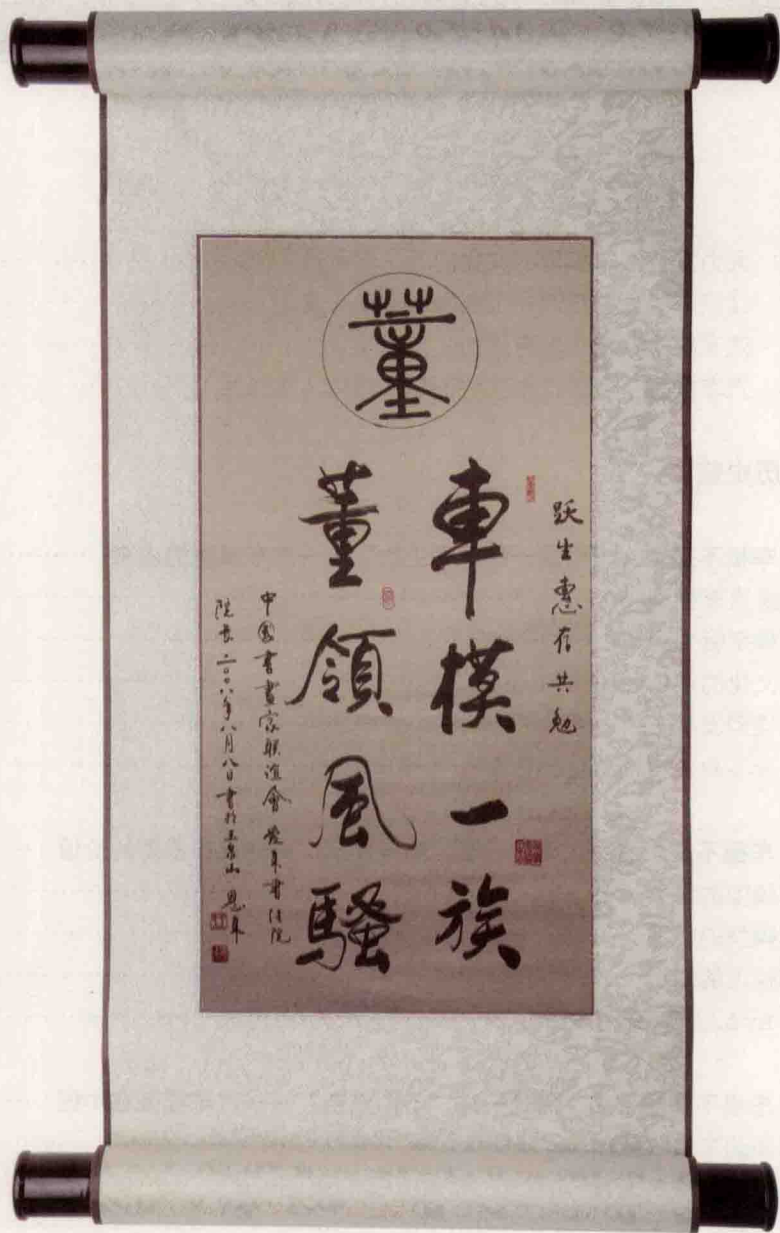 董
跃生惠存共勉
車模一族
董領風騷
中国書畫家联谊會 愛車書法院
院長 二〇〇八年八月八日 書於玉泉山